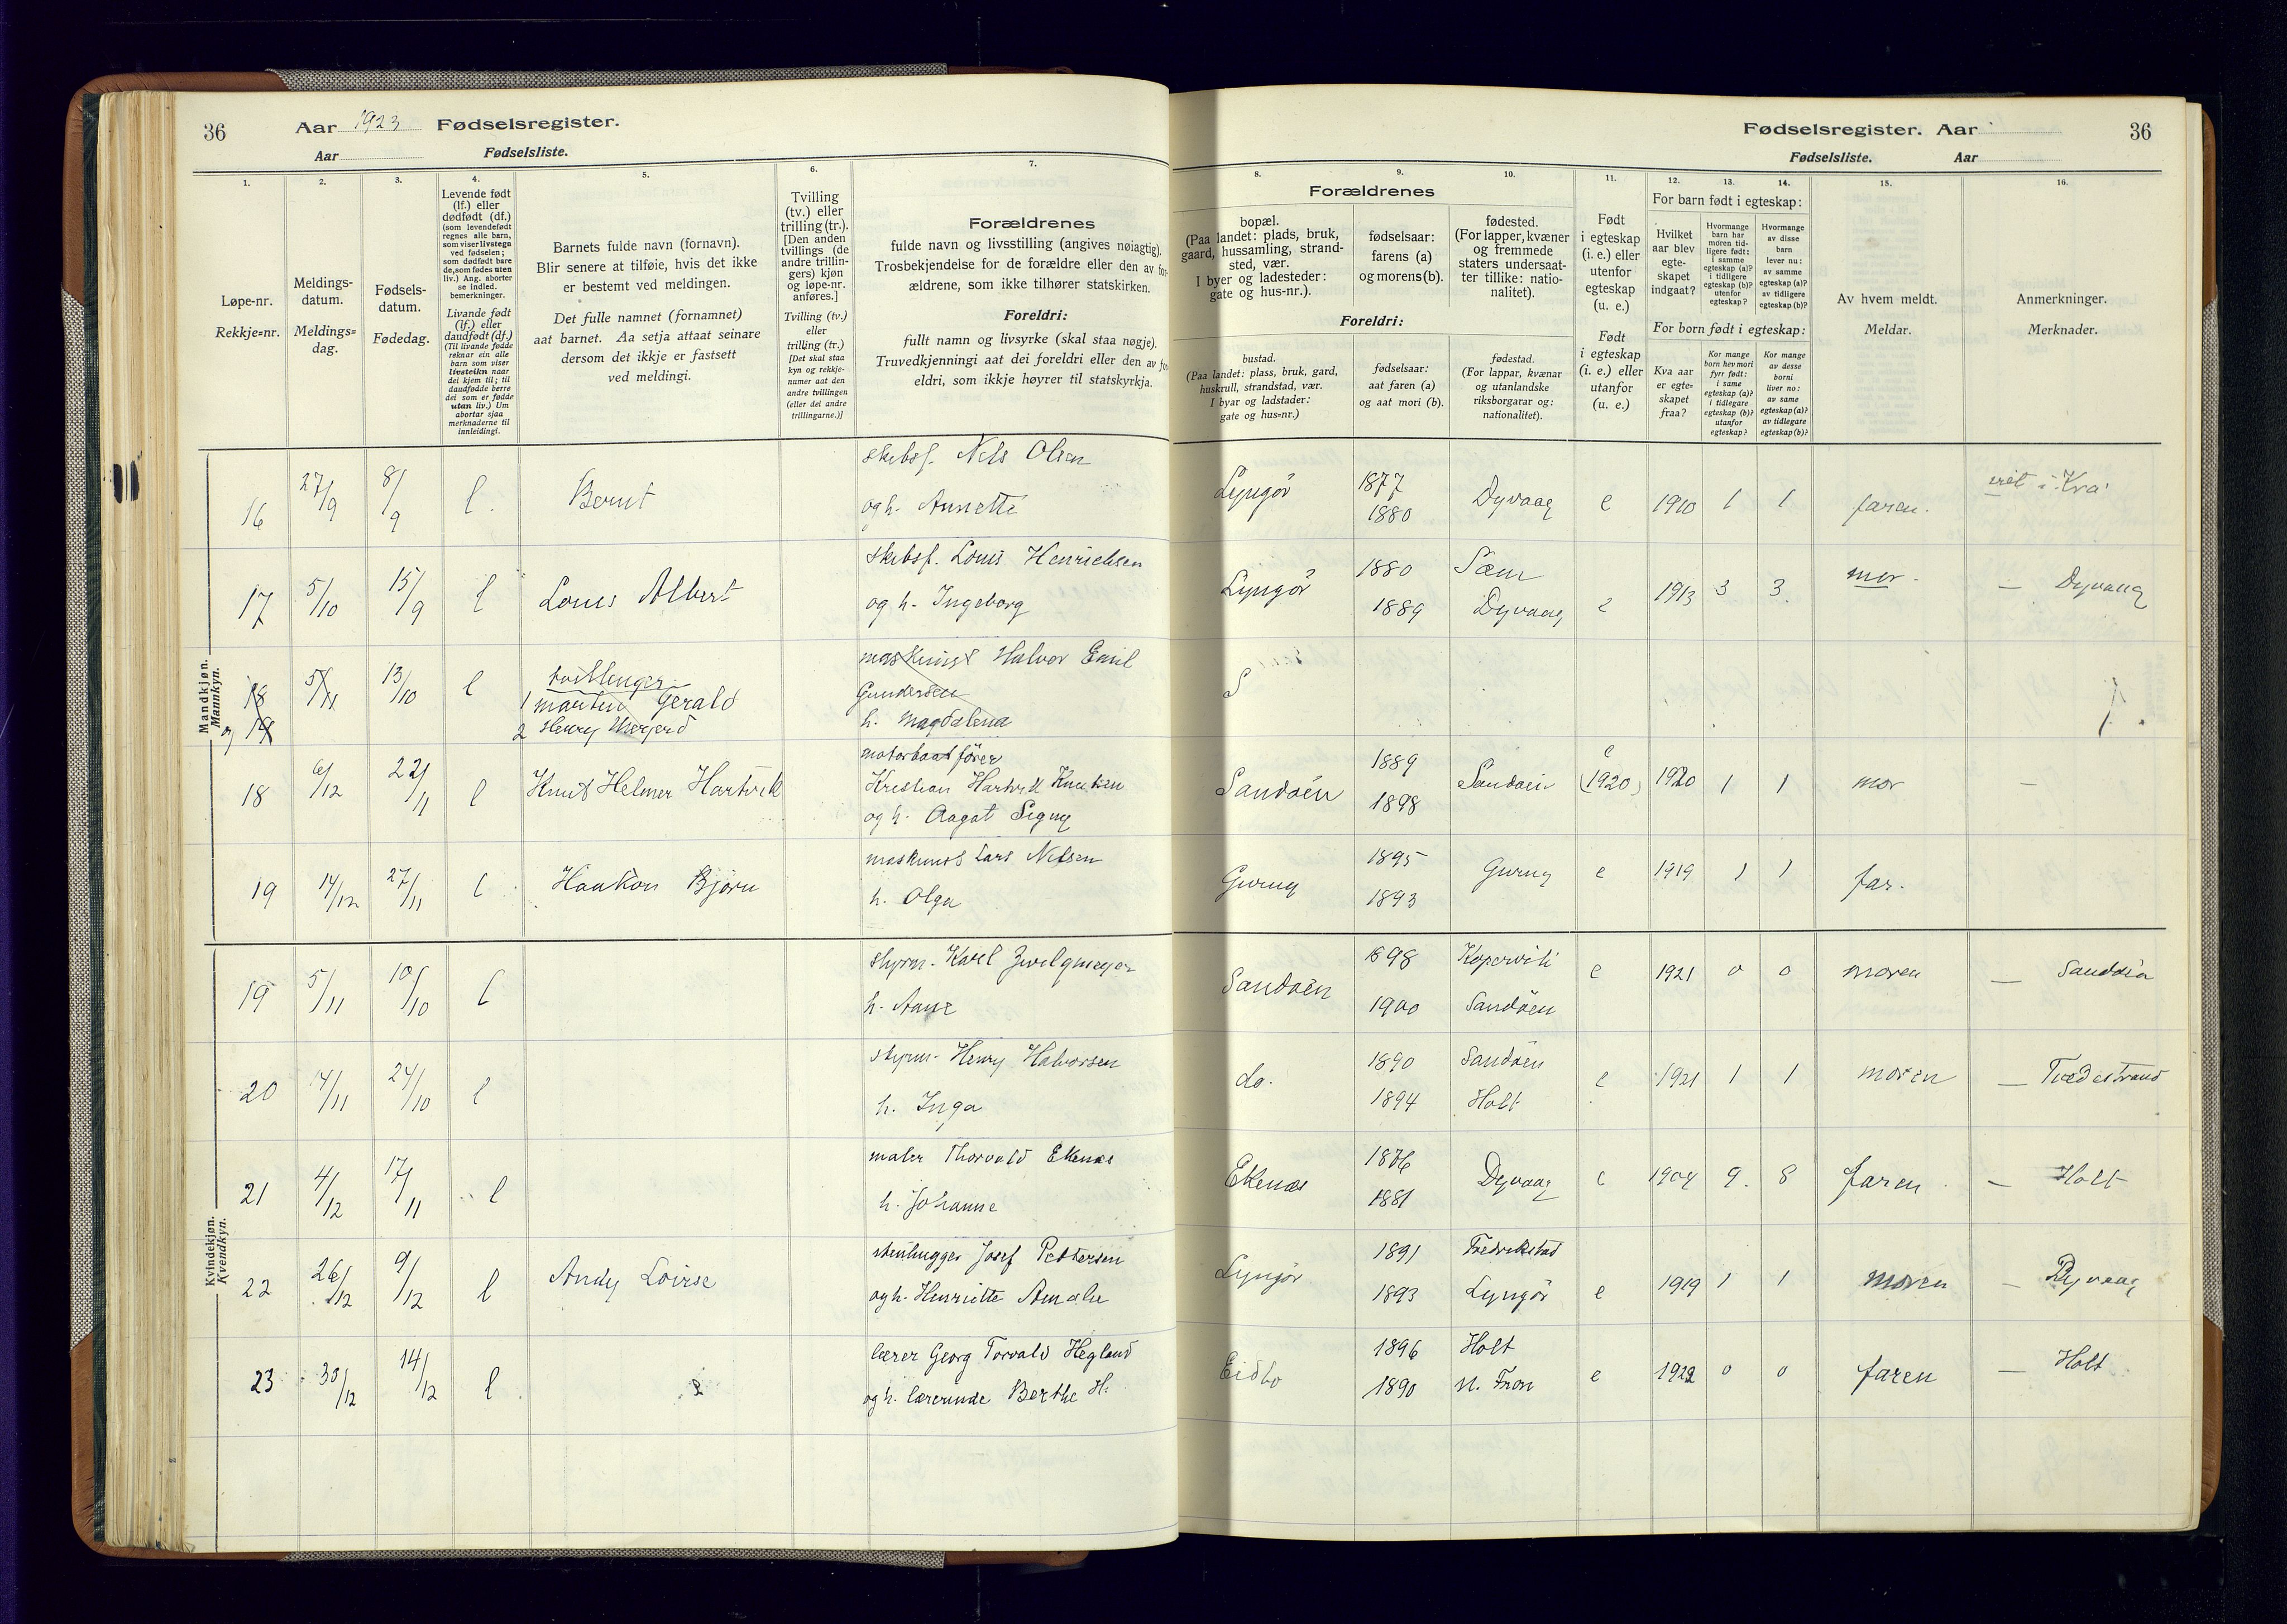 36 Aar 1923 Fødselsregister.
Aar Fødselsliste.
Fødselsregister. Aar 36
Fødselsliste. Aar
1. 2. 3. 4. 5. 6. 7. 8. 9. 10. 11. 12. 13. 14. 15. 16.
Løpe-nr.
Rekkje=nr.
Meldings-
datum.
Meldings=
dag.
Fødsels-
datum.
Fødedag.
Levende født
(lf.) eller
dødfødt (df.)
(som levendefødt
regnes alle barn,
som viser livstegn
ved fødselen;
som dødfødt bare
de, som fødes uten
liv.) Ang. aborter
se indled.
bemerkninger.
Livande født
(lf.) eller
daudfødt (df.)
(Til livande fødde
reknar ein alle
barn som viser
livsteikn naar
dei kjem til; til
daudfødde berre
dei som er fødde
utan liv.) Um
abortar sjaa
merknaderne til
innleidingi.
Barnets fulde navn (fornavn).
Blir senere at tilføie, hvis det ikke
er bestemt ved meldingen.
Det fulle namnet (fornamnet)
aat barnet. Aa setja attaat seinare
dersom det ikkje er fastsett
ved meldingi.
Tvilling
(tv.) eller
trilling (tr.).
[Den anden
tvillings (de
andre trillin-
gers) kjøn
og løpe-nr.
anføres.]
Tvilling (tv.)
eller
trilling (tr.)
[Det skal staa
kyn og rekkje-
numer aat den
andre tvillingen
(eller dei andre
trillingarne.)]
Forældrenes
fulde navn og livsstilling (angives nøiagtig).
Trosbekjendelse for de forældre eller den av for-
ældrene, som ikke tilhører statskirken.
Foreldri:
fullt namn og livsyrke (skal staa nøgje).
Truvedkjenningi aat dei foreldri eller den av for-
eldri, som ikkje høyrer til statskyrkja.
Forældrenes
bopæl.
(Paa landet: plads, bruk,
gaard, hussamling, strand-
sted, vær.
I byer og ladesteder:
gate og hus-nr.).
fødselsaar:
farens (a)
og morens (b).
fødested.
(For lapper, kvæner
og fremmede
staters undersaat-
ter tillike: natio-
nalitet).
Foreldri:
bustad.
(Paa landet: plass, bruk, gard,
huskrull, strandstad, vær.
I byar og ladstader:
gate og hus=nr.)
fødselsaar:
aat faren (a)
og aat mori (b).
fødestad.
(For lappar, kvænar
og utanlandske
riksborgarar og:
nationalitet).
Født
i egteskap
(i. e.) eller
utenfor
egteskap
(u. e.)
Født
i egteskap
(i. e.) eller
utanfor
(u. e.)
For barn født i egteskap:
Hvilket
aar blev
egte-
skapet
indgaat?
Hvormange
barn har
moren tid-
ligere født:
i samme
egteskap (a)?
i tidligere
egteskap (b)?
utenfor
egteskap?
Hvormange
av disse
barn
lever nu:
av samme
egteskap (a)?
av tidligere
egteskap (b)?
For born født i egteskap:
Kva aar
er egte=
skapet
fraa?
Kor mange
born hev mori
fyrr født:
i same
egteskap (a)?
i tidlegare
egteskap (b)?
utanfor
egteskap?
Kor mange
av desse
borni
liver no:
av same
egteskap (a)?
av tidlegare
egteskap (b)?
Av hvem meldt.
Meldar.
Anmerkninger.
Merknader.
Mandkjøn.
Mannkyn.
16 27/9 8/9 l. Bernt skibsf. Nils Olsen
og h. Annette Lyngör 1877 1880 Dyvaag e 1910 1 1 faren.
17 5/10 15/9 l Louis Albert skibsf. Louis Henrichsen
og h. Ingeborg Lyngör 1880 1889 Dyvaag e 1913 3 3. mor. — Dyvaag
18 og 19 5/11 13/10 l tvillinger
1 Martin Gerald
2 Henry
maskinist Halvor Emil
Gundersen
h. Magdalena S
18 6/12 22/11 l Knut Helmer Hartvik motorbaatfører
Kristian Hartvik Knutsen
og h. Aagot Signy Sandöen 1889 1898 Sandöen e (1920) 1920 1 1 mor —
19 14/12 27/11 l Haakon Bjørn maskinist Lars Nilsen
h. Olga 1895 1893 e 1919 1 1 far.
Kvindekjøn.
Kvendkyn.
19 5/11 10/10 l styrm. Karl Zwilgmeyer
h. Aane Sandöen 1898 1900 Kopervik Sandöen e 1921 0 0 moren — Sandöen
20 14/11 24/10 l styrm. Henry Halvorsen
h. Inga do. 1890 1894 Sandöen Holt e 1921 1 1 moren — Tvedestrand
21 4/12 17/11 l maler Thorvald Ekenæs
h. Johanne Ekenæs 1876 1881 Dyvaag e 1904 9. 8 faren — Holt
22 26/12 9/12 l Andy Lovise stenhugger Josef Pettersen
og h. Henriette Amalie Lyngör 1891 1893 Fredrikstad Lyngör e 1919 1 1 moren — Dyvaag
23 30/12 14/12 l lærer Georg Torvald Hegland
og h. lærerinde Berthe H. Eidbo 1896 1890 Holt N. Fron e 1922 0 0 faren — Holt